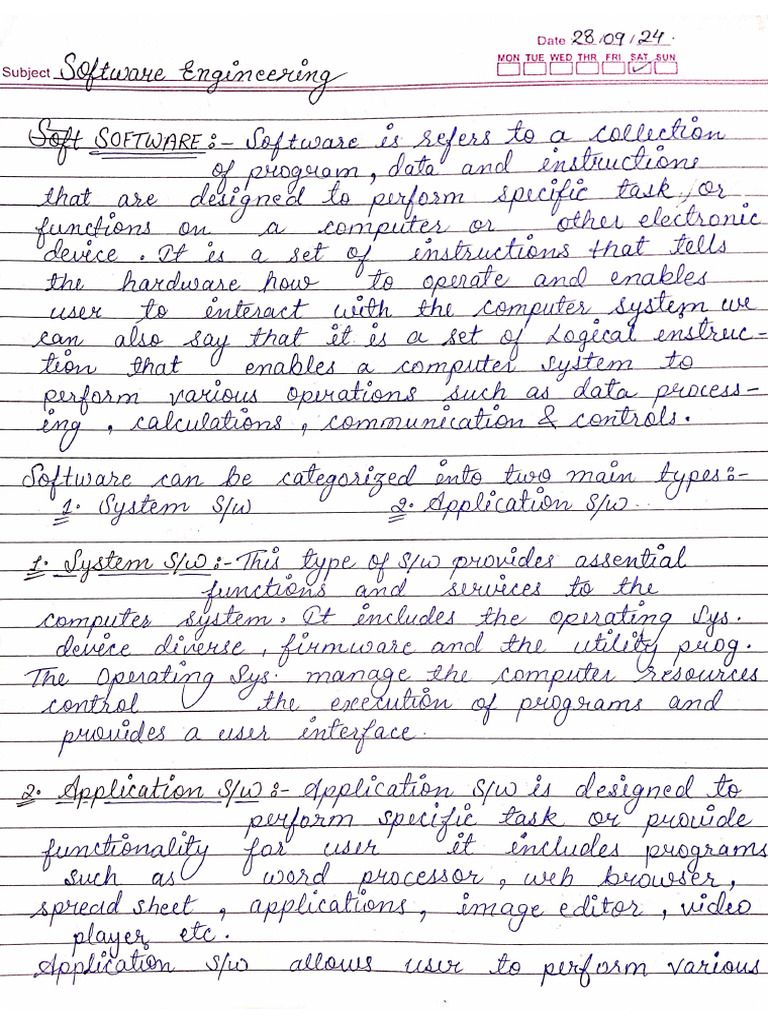 Date 28/09/24.
MON TUE WED THR FRI SAT SUN
Subject Software Engineering
Soft SOFTWARE:- Software is refers to a collection
of program, data and instructions
that are designed to perform specific task, or
functions on a computer or other electronic
device. It is a set of instructions that tells
the hardware how to operate and enables
user to interact with the computer system we
can also say that it is a set of Logical instruc-
tion that enables a computer system to
perform various operations such as data process-
ing, calculations, communication & controls.
Software can be categorized into two main types:-
1. System S/W 2. Application S/W.
1. System S/W:- This type of S/W provides assential
functions and services to the
computer system. It includes the operating Sys.
device diverse, firmware and the utility prog.
The Operating Sys. manage the computer resources
control the execution of programs and
provides a user interface.
2. Application S/W:- Application S/W is designed to
perform specific task or provide
functionality for user it includes programs
such as word processor, web browser,
spread sheet, applications, image editor, video
player, etc.
Application S/W allows user to perform various